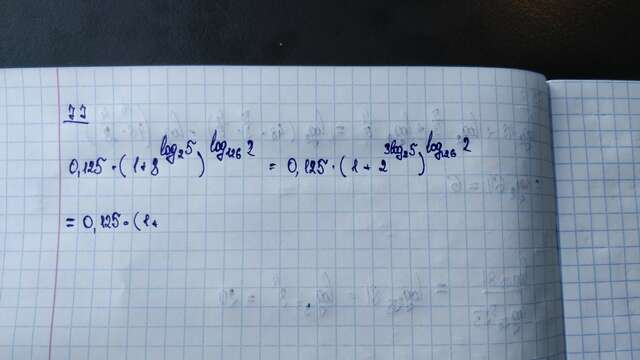 77
0,125 · (1 + 8^{log_2 5})^{log_{126} 2} = 0,125 · (1 + 2^{3log_2 5})^{log_{126} 2}
= 0,125 · (1 +